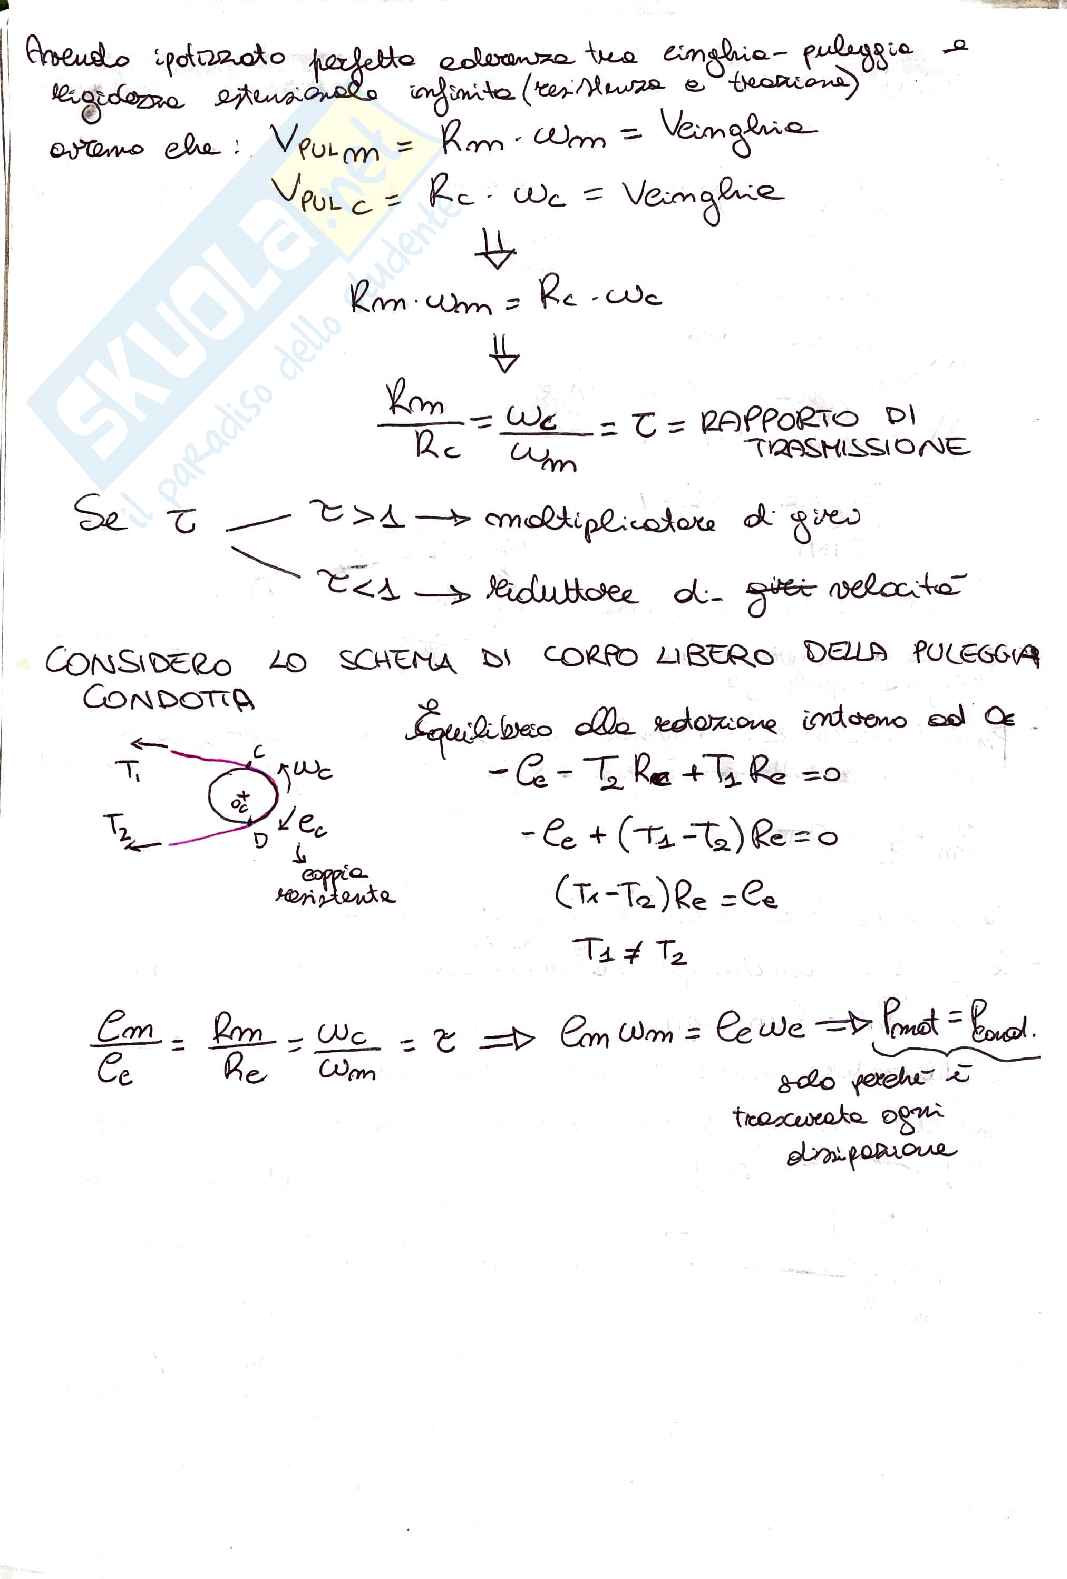 Avendo ipotizzato perfetta aderenza tra cinghia-puleggia e
rigidezza estensionale infinita (resistenza e trazione)
avremo che: VPULm = Rm · ωm = Vcinghia
VPULc = Rc · ωc = Vcinghia
⇓
Rm · ωm = Rc · ωc
⇓
Rm/Rc = ωc/ωm = τ = RAPPORTO DI TRASMISSIONE
Se τ
τ>1 → moltiplicatore di giri
τ<1 → riduttore di giri velocità
CONSIDERO LO SCHEMA DI CORPO LIBERO DELLA PULEGGIA
CONDOTTA
Equilibrio alla rotazione intorno ad Oc.
T1 C ωc
Oc
T2 D Cc
coppia
resistente
-Cc - T2 Rc + T1 Rc = 0
-Cc + (T1-T2) Rc = 0
(T1-T2) Rc = Cc
T1 ≠ T2
Cm/Cc = Rm/Rc = ωc/ωm = τ ⇒ Cm ωm = Cc ωc ⇒ Pmot = Pcond.
solo perché è
trascurata ogni
dissipazione
SKUOLA.net
il paradiso dello studente